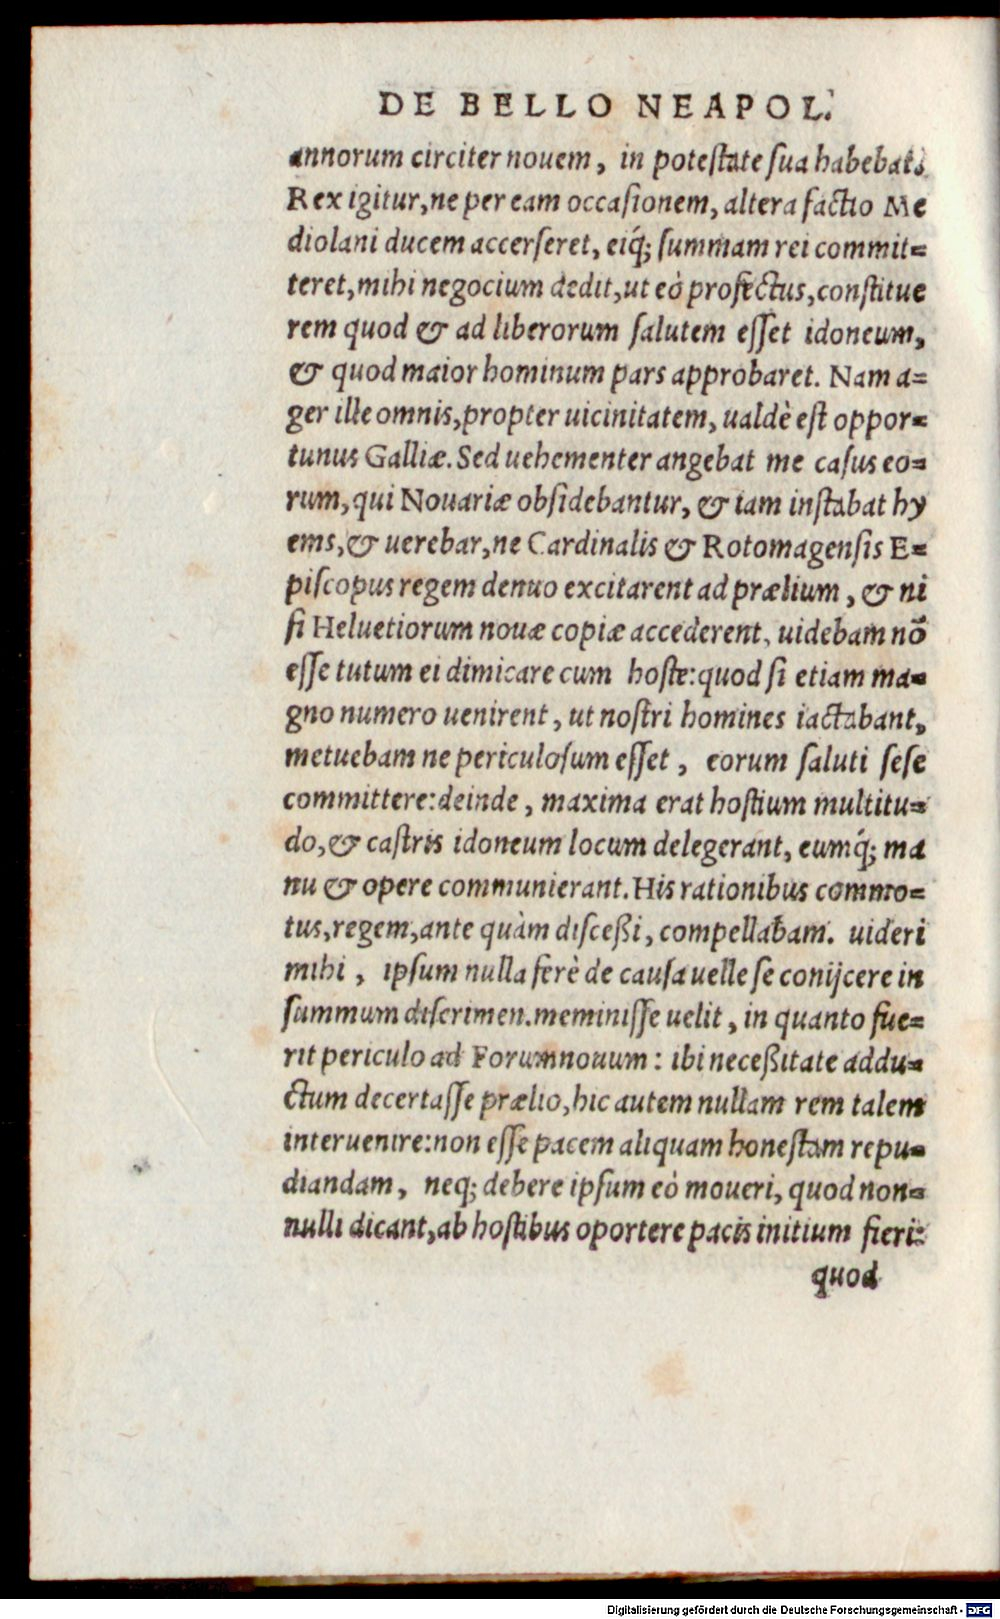 DE BELLO NEAPOL.
annorum circiter nouem, in potestate sua habebat.
Rex igitur, ne per eam occasionem, altera factio Me
diolani ducem accerseret, eiq́; summam rei commit=
teret, mihi negocium dedit, ut eò profectus, constitue
rem quod & ad liberorum salutem esset idoneum,
& quod maior hominum pars approbaret. Nam a=
ger ille omnis, propter uicinitatem, ualdè est oppor=
tunus Galliæ. Sed uehementer angebat me casus eo=
rum, qui Nouariæ obsidebantur, & iam instabat hy
ems, & uerebar, ne Cardinalis & Rotomagensis E=
piscopus regem denuo excitarent ad prælium, & ni
si Heluetiorum nouæ copiæ accederent, uidebam nō
esse tutum ei dimicare cum hoste: quod si etiam ma=
gno numero uenirent, ut nostri homines iactabant,
metuebam ne periculosum esset, eorum saluti sese
committere: deinde, maxima erat hostium multitu=
do, & castris idoneum locum delegerant, eumq́; ma
nu & opere communierant. His rationibus commo=
tus, regem, ante quàm disceßi, compellabam. uideri
mihi, ipsum nulla ferè de causa uelle se conijcere in
summum discrimen. meminisse uelit, in quanto fue=
rit periculo ad Forumnouum: ibi neceßitate addu=
ctum decertasse prælio, hic autem nullam rem talem
interuenire: non esse pacem aliquam honestam repu=
diandam, neq; debere ipsum eò moueri, quod non=
nulli dicant, ab hostibus oportere pacis initium fieri:
quod
Digitalisierung gefördert durch die Deutsche Forschungsgemeinschaft - DFG